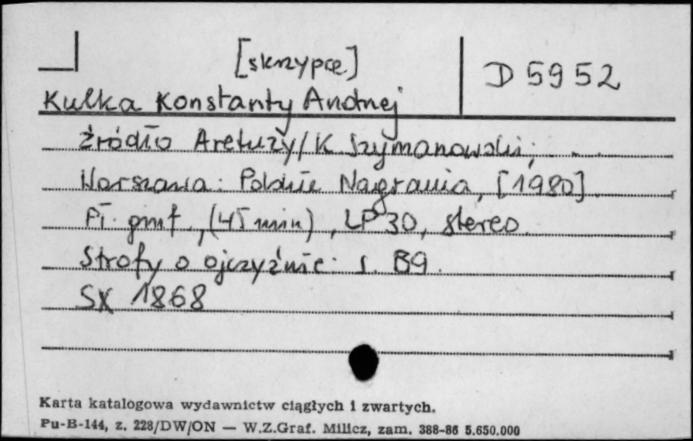 [skrzypce]
D 5952
Kulka Konstanty Andrzej
Źródło Aretuzy / K. Szymanowski; . . .
Warszawa: Polskie Nagrania, [1980]
Pł. gmf., (45 min), LP 30, stereo
Strofy o ojczyźnie. s. B9.
SX 1868
Karta katalogowa wydawnictw ciągłych i zwartych.
Pu-B-144, z. 228/DW/ON — W.Z.Graf. Milicz, zam. 388-86 5.650.000